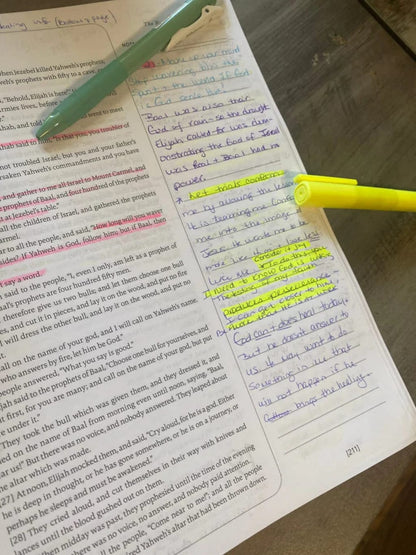 healing info (previous page)
The B
NOTES
when Jezebel killed Yahweh's prophets,
weh's prophets with fifty to a cave,
"Behold, Elijah is here."
armies lives, before
Ahab, and told went to meet
hab said to him, "Is that you, you troubler of
not troubled Israel, but you and your father's
rsaken Yahweh's commandments and you have
and gather to me all Israel to Mount Carmel, and
e prophets of Baal, and four hundred of the prophets
at at Jezebel's table."
all the children of Israel, and gathered the prophets
armel.
ar to all the people, and said, "How long will you waver
sides? If Yahweh is God, follow him; but if Baal, then
t say a word.
h said to the people, "I, even I only, am left as a prophet of
l's prophets are four hundred fifty men.
therefore give us two bulls; and let them choose one bull
es, and cut it in pieces, and lay it on the wood, and put no
I will dress the other bull, and lay it on the wood, and put no
call on the name of your god, and I will call on Yahweh's name.
who answers by fire, let him be God."
people answered, "What you say is good."
jah said to the prophets of Baal, "Choose one bull for yourselves, and
first, for you are many; and call on the name of your god, but put
e under it."
They took the bull which was given them, and they dressed it, and
ed on the name of Baal from morning even until noon, saying, "Baal,
ar us!" But there was no voice, and nobody answered. They leaped about
the altar which was made.
[27] At noon, Elijah mocked them, and said, "Cry aloud; for he is a god. Either
he is deep in thought, or he has gone somewhere, or he is on a journey, or
perhaps he sleeps and must be awakened."
[28] They cried aloud, and cut themselves in their way with knives and
lances until the blood gushed out on them.
hen midday was past, they prophesied until the time of the evening
there was no voice, no answer, and nobody paid attention.
all the people, "Come near to me!"; and all the people
red Yahweh's altar that had been thrown down.
your mind
Stop wavering btwn the
want + the world, if God
is God serve him!
Baal was also their
God of rain - so the drought
Elijah called for was dem-
onstrating the God of Israel
was Real + Baal had no
power.
* Let trials conform
me by allowing the
It is transforming
me into the image of
Jesus. He wants me to be
more like Jesus + live just
like He Consider it joy
To do this you
I need to know God is where
The testing of my faith
produces perseverance
I can get closer to him +
know what He is doing
But God can + does heal today,
But he doesn't answer to
us. He may want to do
something in us that
will not happen if he
heals
[211]